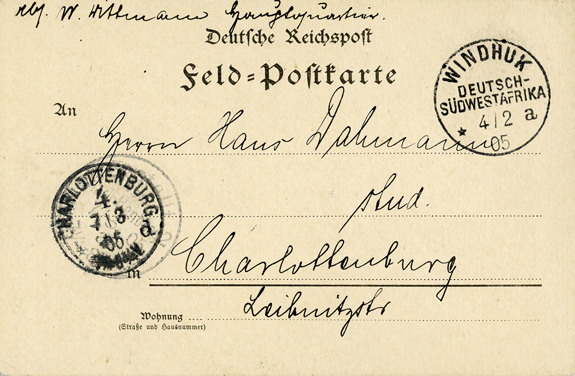 W. Wittmann Hauptquartier.
Deutsche Reichspost
Feld=Postkarte
WINDHUK
DEUTSCH-
SÜDWESTAFRIKA
* 4/2 a
05
An
Herrn Hans Dahmann
stud.
CHARLOTTENBURG
4.
7/3 d
05
in
Charlottenburg
Leibnitzstr
Wohnung
(Straße und Hausnummer)